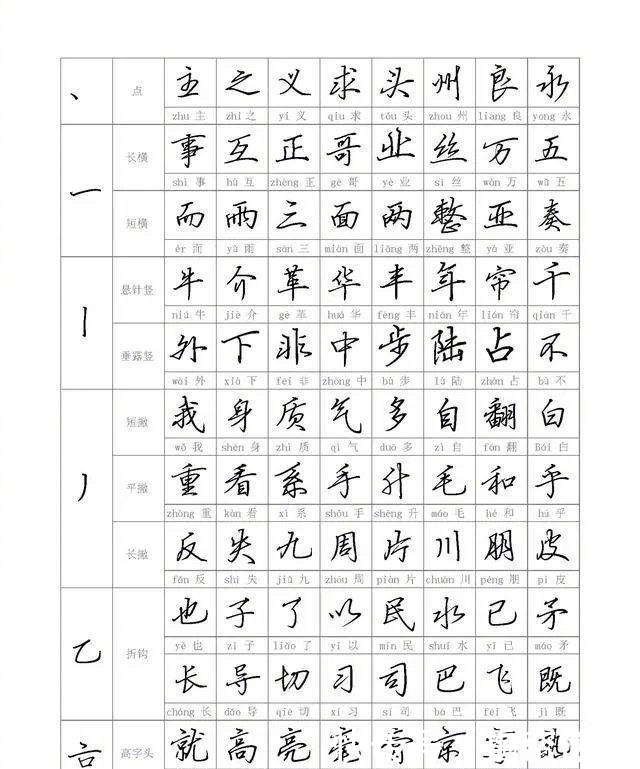 、 点 主 之 义 求 头 州 良 永
zhu 主 zhi 之 yi 义 qiu 求 tóu 头 zhou 州 liang 良 yong 永
一 长横 事 互 正 哥 业 丝 万 五
shì 事 hù 互 zhèng 正 gē 哥 yè 业 sī 丝 wàn 万 wǔ 五
短横 而 雨 三 面 两 整 亚 奏
ér 而 yǔ 雨 sān 三 miàn 面 liǎng 两 zhěng 整 yà 亚 zòu 奏
丨 悬针竖 牛 介 革 华 丰 年 帘 千
niú 牛 jiè 介 gé 革 huá 华 fēng 丰 nián 年 lián 帘 qiān 千
垂露竖 外 下 非 中 步 陆 占 不
wài 外 xià 下 fēi 非 zhōng 中 bù 步 lù 陆 zhàn 占 bù 不
丿 短撇 我 身 质 气 多 自 翻 白
wǒ 我 shēn 身 zhì 质 qì 气 duō 多 zì 自 fān 翻 Bái 白
平撇 重 看 系 手 升 毛 和 乎
zhòng 重 kàn 看 xì 系 shǒu 手 shēng 升 máo 毛 hé 和 hū 乎
长撇 反 失 九 周 片 川 朋 皮
fǎn 反 shī 失 jiǔ 九 zhōu 周 piàn 片 chuān 川 péng 朋 pí 皮
乙 折钩 也 子 了 以 民 水 已 矛
yě 也 zǐ 子 liǎo 了 yǐ 以 mín 民 shuǐ 水 yǐ 已 máo 矛
长 导 切 习 司 巴 飞 既
cháng 长 dǎo 导 qiē 切 xí 习 sī 司 bā 巴 fēi 飞 jì 既
高字头 就 高 亮 豪 膏 京